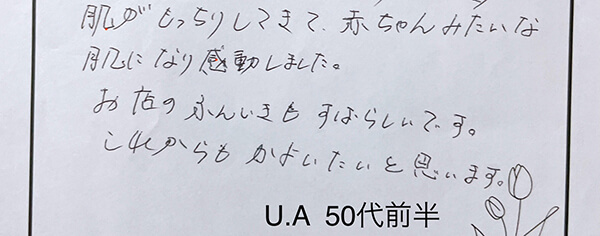 肌がもっちりしてきて、赤ちゃんみたいな
肌になり感動しました。
お店のふんいきもすばらしいです。
これからもかよいたいと思います。
U.A 50代前半